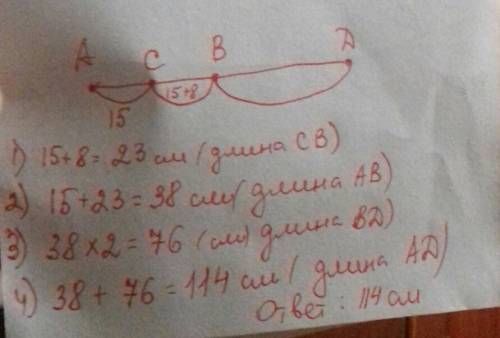 A C B D
15 15+8
1) 15+8=23 см (длина CB)
2) 15+23=38 см (длина AB)
3) 38×2=76 (см) длина BD)
4) 38+76=114 см (длина AD)
Ответ: 114 см